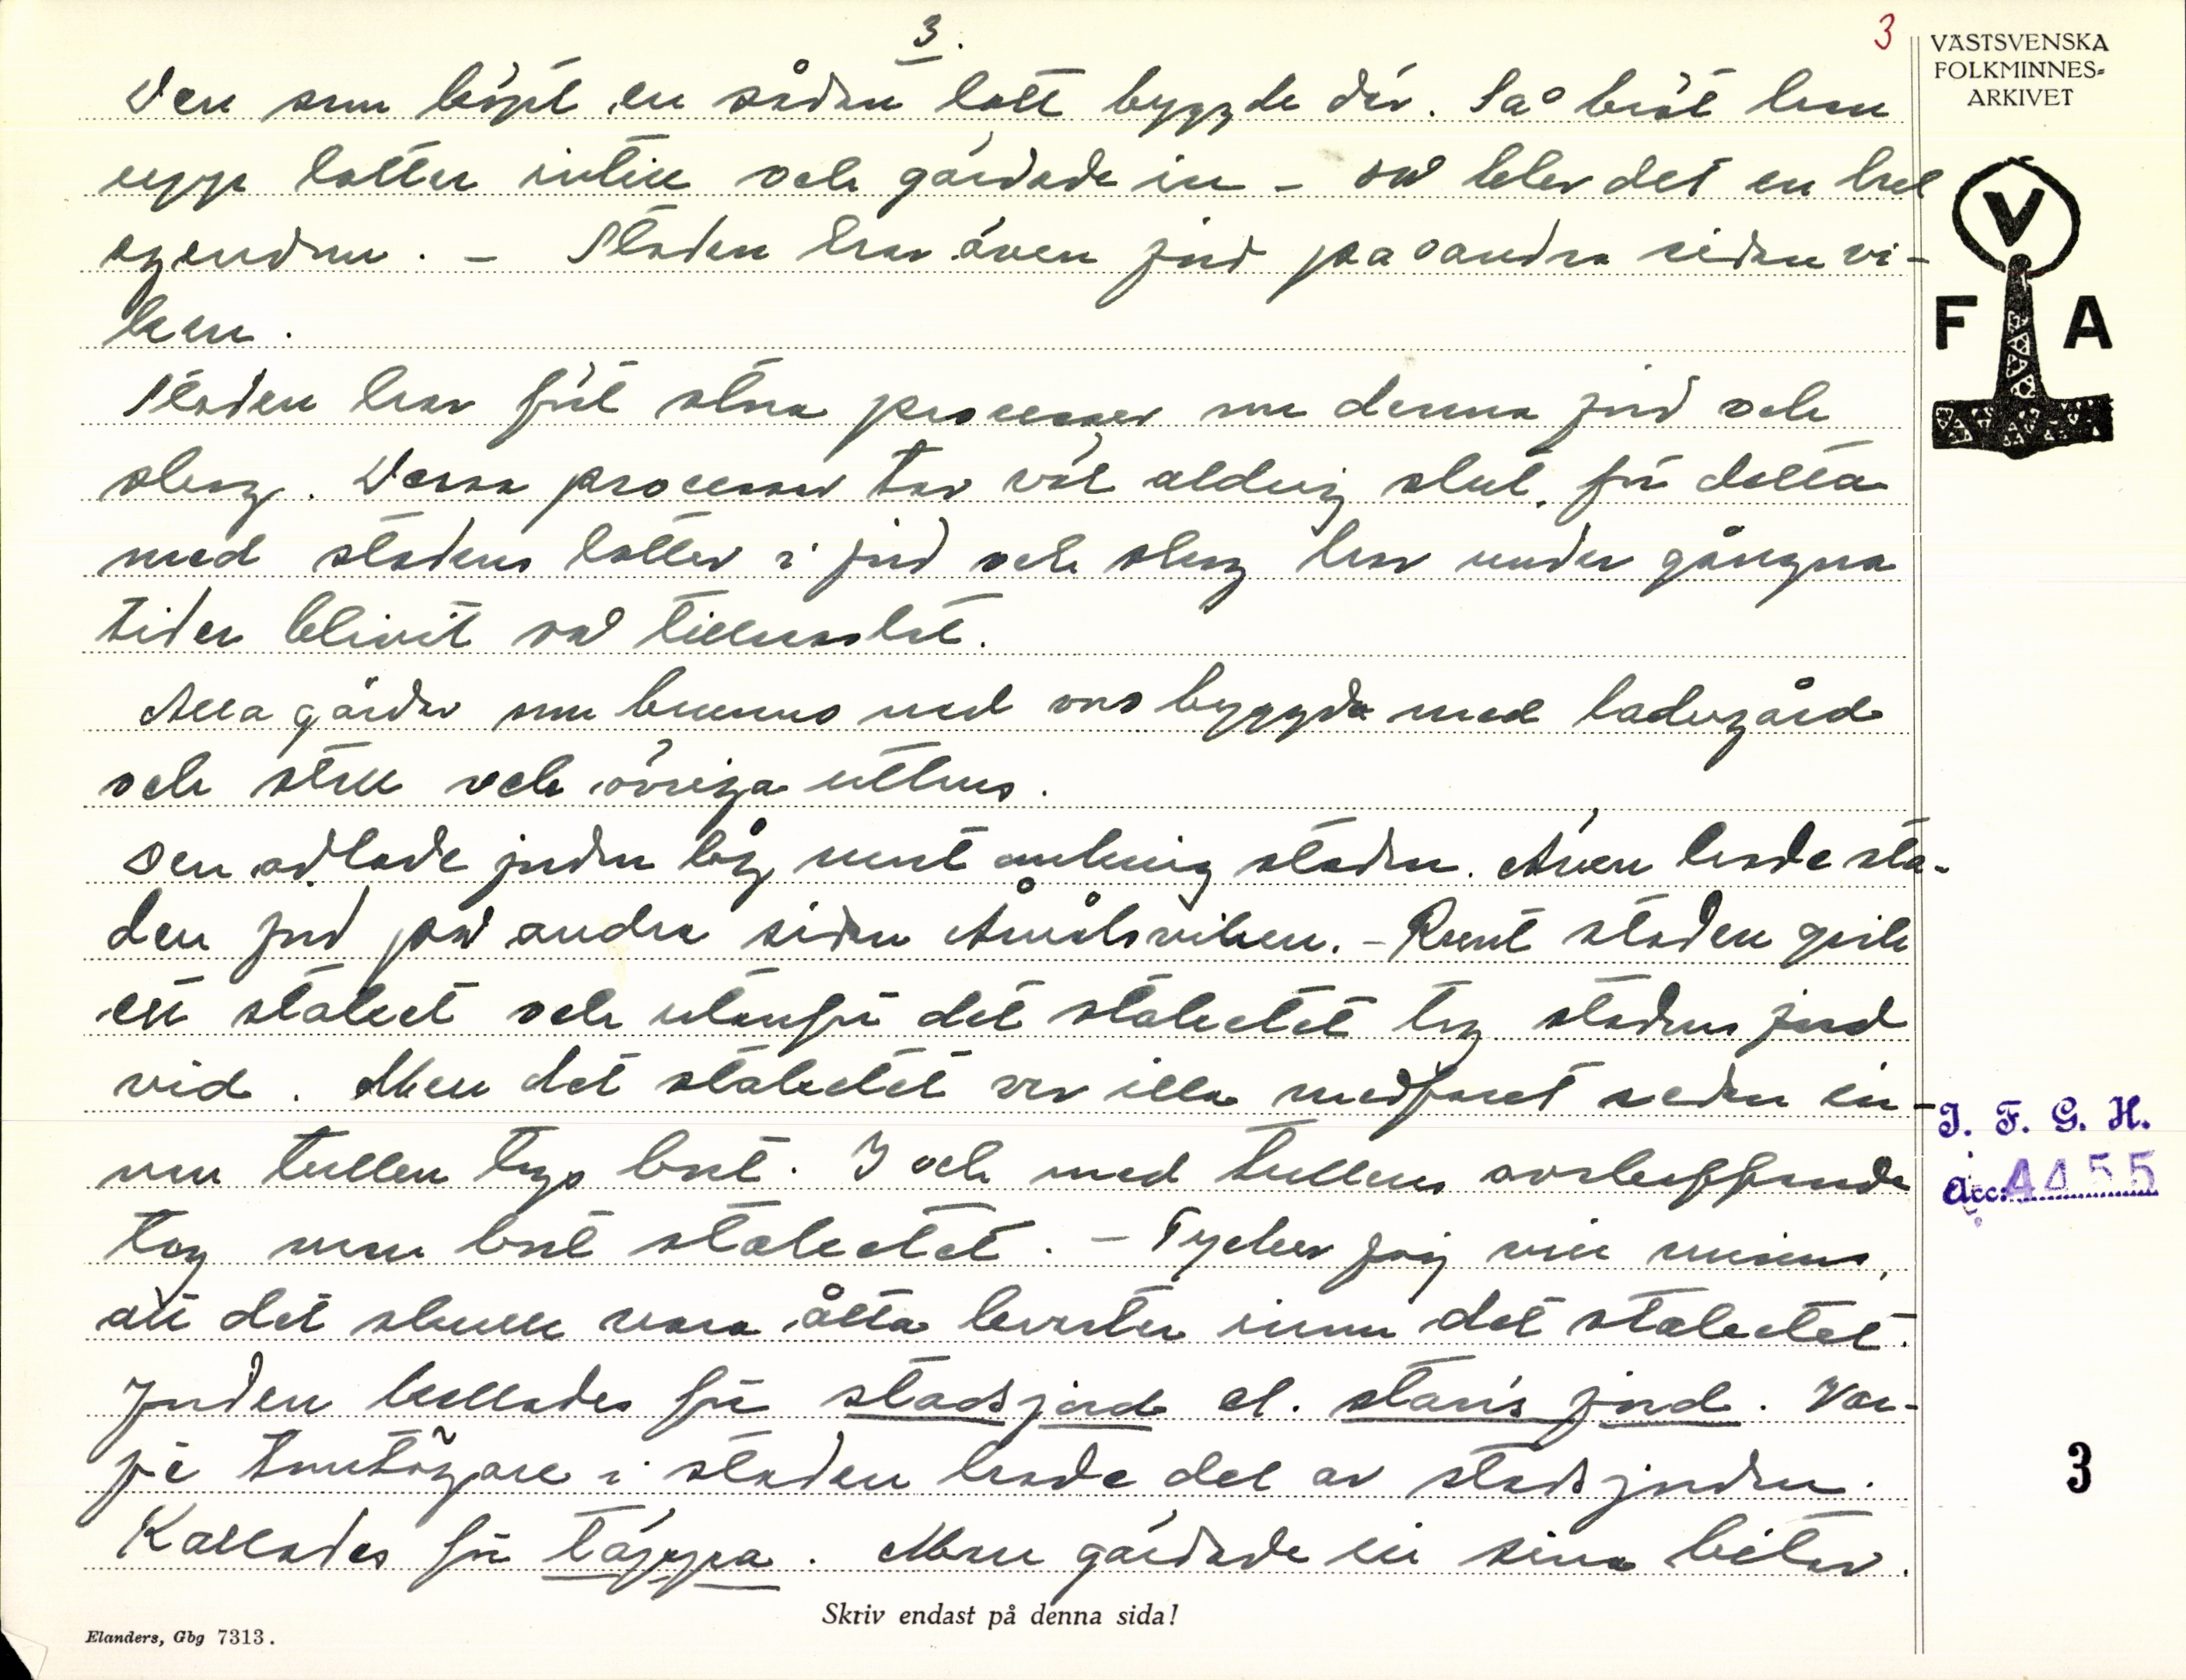 3.
3
VÄSTSVENSKA
FOLKMINNES-
ARKIVET
V
F A
Den som köpt en sådan lott byggde där. Så bröt han
upp lotter intill och gärdade in - så blev det en hel
egendom. - Staden har även jord på andra sidan vi-
ken.
Staden har fört stora processer om denna jord och
skog. Dessa processer tar väl aldrig slut, för detta
med stadens lotter i jord och skog har under gångna
tider blivit så tilltrasslat.
Alla gårdar som kunnas ned var byggda med ladugård
och stall och övriga uthus.
Den odlade jorden låg runt omkring staden. Även hade sta-
den jord på andra sidan Åmålsviken. - Runt staden gick
ett staket och utanför det staketet tog stadens jord
vid. Men det staketet var illa medfaret redan in-
nan tullen togs bort. I och med tullens avskaffande
tog man bort staketet. - Tycker jag vill minnas,
att det skulle vara åtta kvarter innom det staketet.
Jorden kallades för stadsjord el. stan's jord. Var-
je tomtägare i staden hade del av stadsjorden.
Kallades för täppa. Man gärdade in sina bitar.
J. F. G. H.
Acc: 4455
3
Skriv endast på denna sida!
Elanders, Gbg 7313.